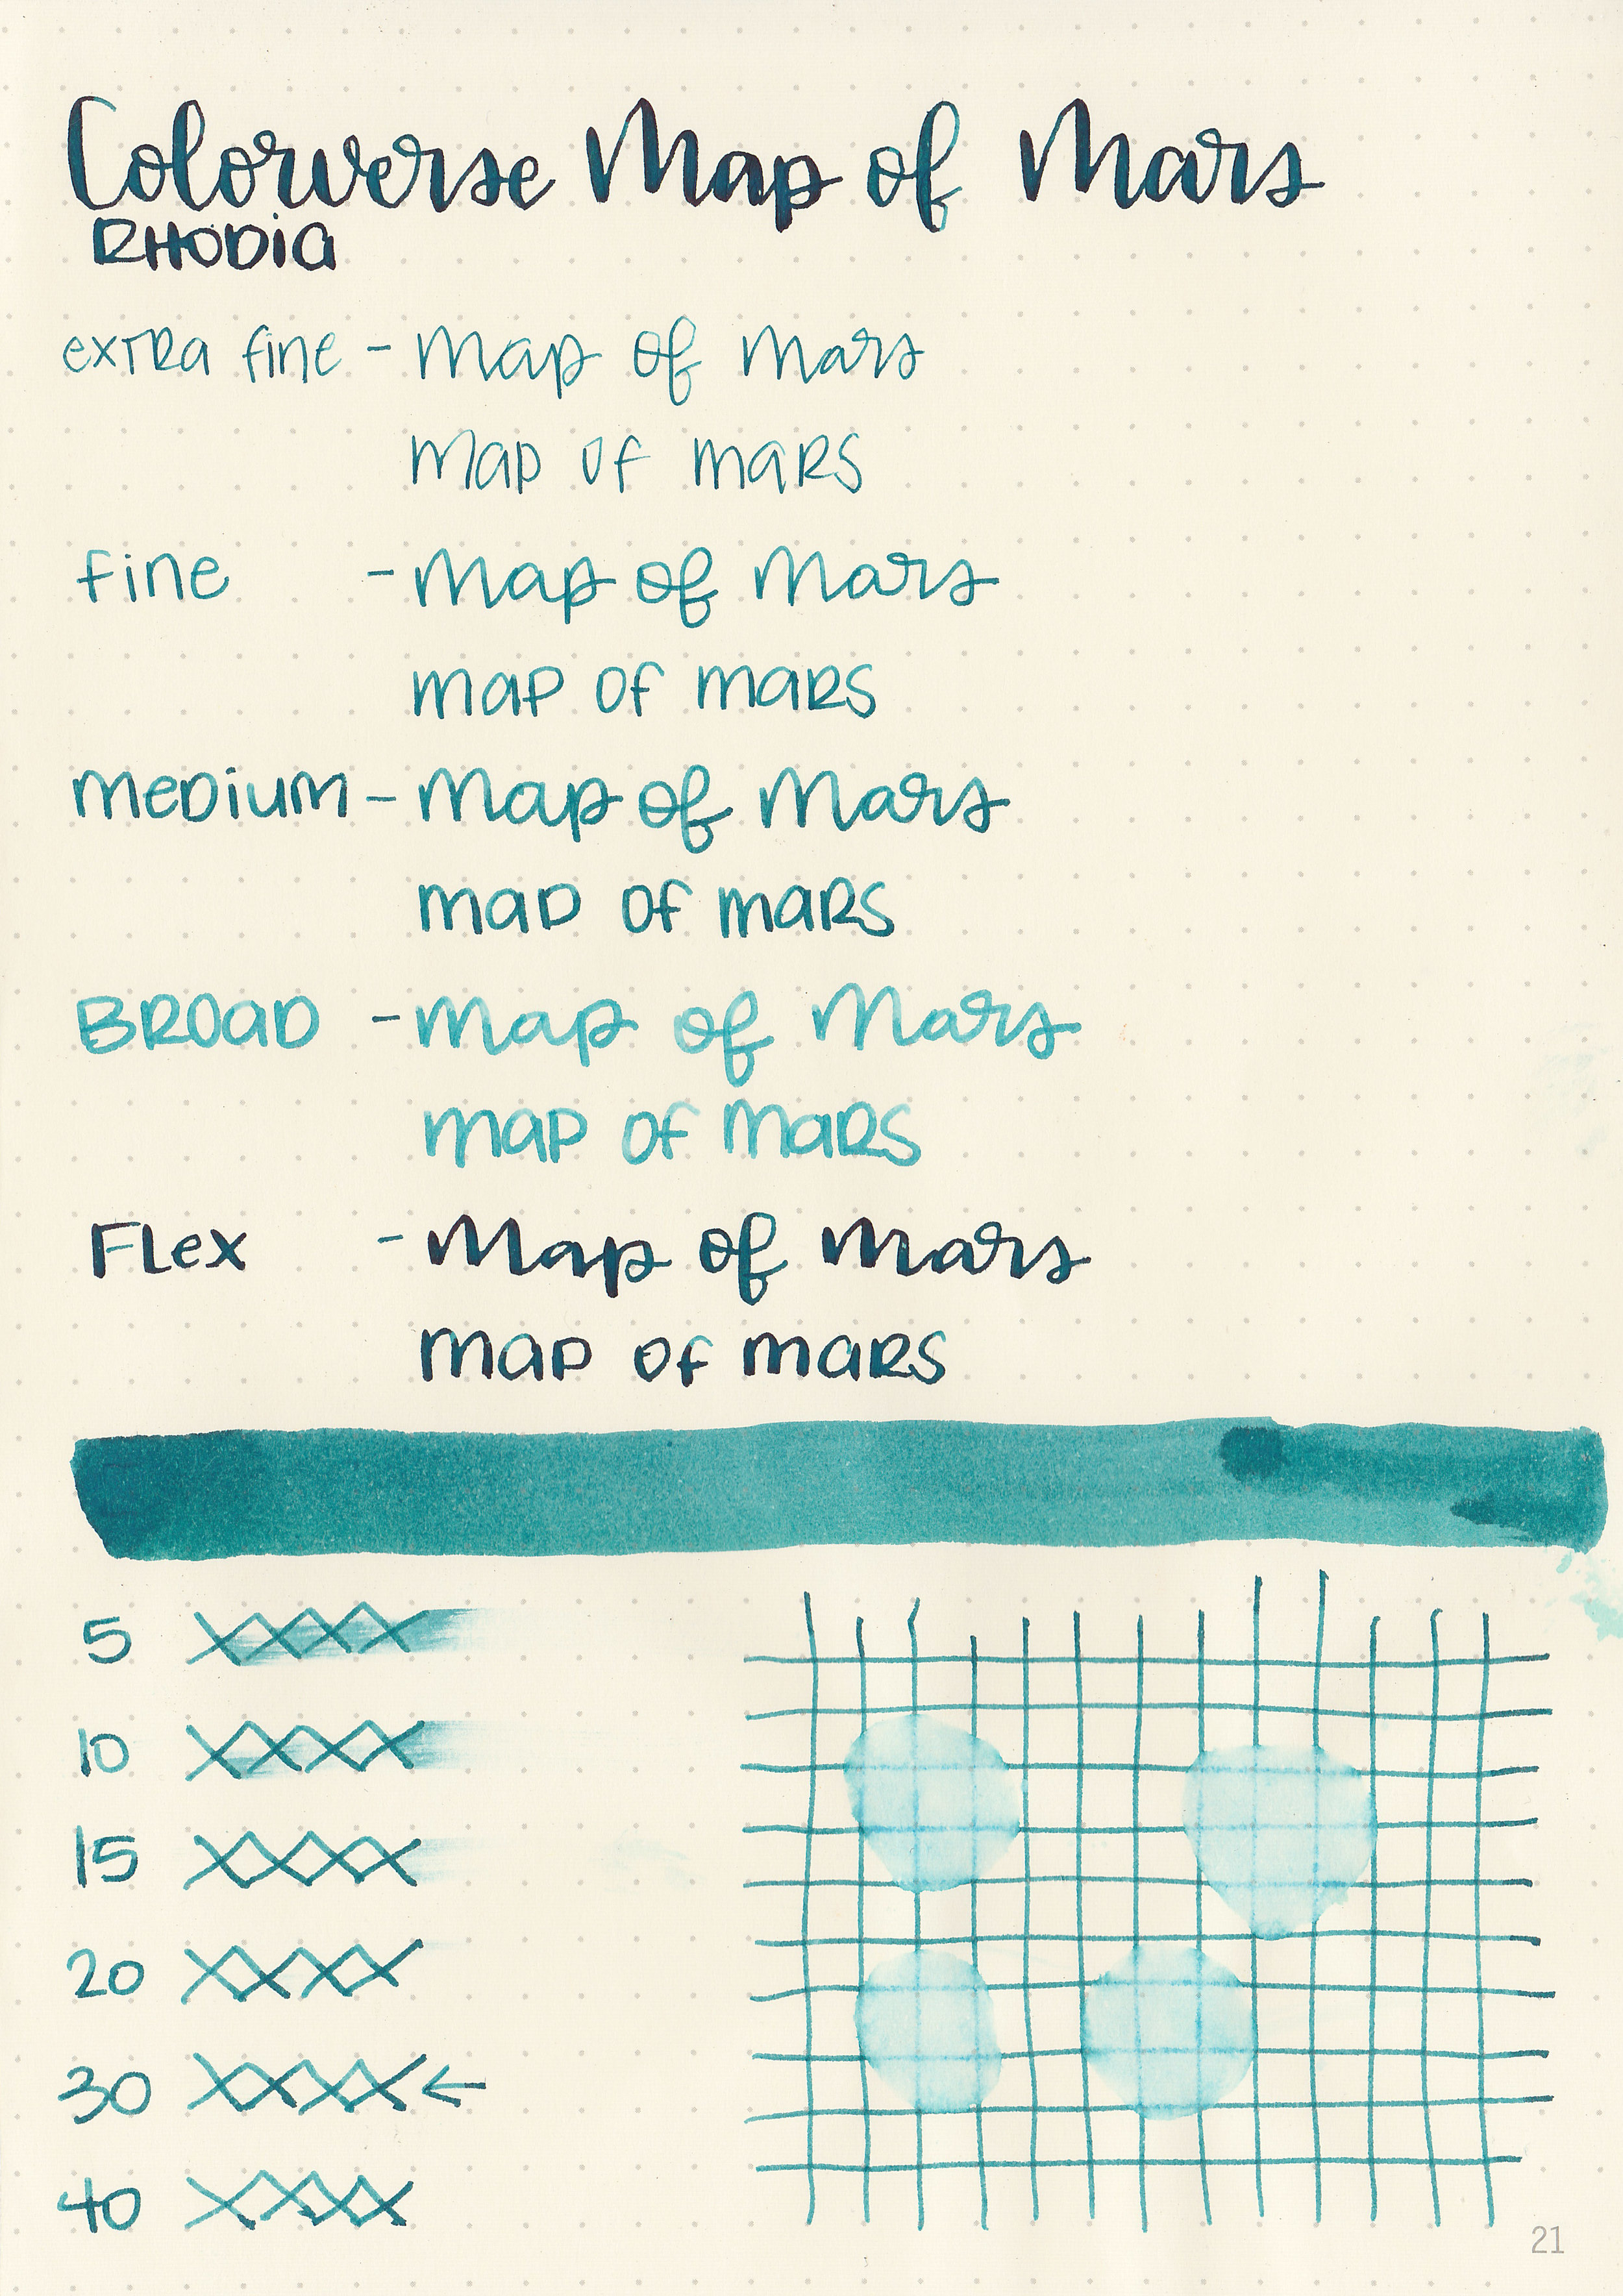 Colorverse Map of Mars
RHODIA
extra fine - Map of Mars
map of mars
fine - Map of Mars
map of mars
medium - Map of Mars
map of mars
BROAD - Map of Mars
map of mars
FLex - Map of Mars
map of mars
5 XXXX
10 XXXX
15 XXXX
20 XXXX
30 XXXX ←
40 XXXX
21